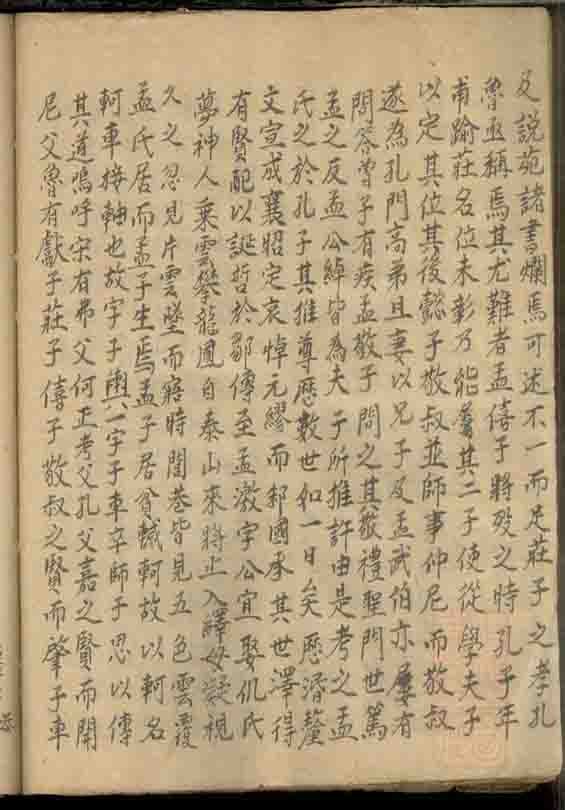 及說苑諸書爛焉可述不一而足莊子之孝孔
魯亟稱焉其尤難者孟僖子將歿之時孔子年
甫踰莊名位未彰乃能屬其二子使從學夫子
以定其位其後懿子敬叔並師事仲尼而敬叔
遂為孔門高弟且妻以兄子及孟武伯亦屢有
問答曾子有疾孟敬子問之其敬禮聖門世篤
孟之反孟公綽皆為夫子所推許由是考之孟
氏之於孔子其推尊歷數世如一日矣歷湣釐
文宣成襄昭定哀悼元繆而邾國承其世澤得
有賢配以誕哲於鄒傳至孟激字公宜娶仉氏
夢神人乘雲攀龍鳳自泰山來將止入嶧母凝視
久之忽見片雲墜而寤時閭巷皆見五色雲覆
孟氏居而孟子生焉孟子居貧轗軻故以軻名
軻車接軸也故字子輿一字子車卒師子思以傳
其道嗚呼宋有弗父何正考父孔父嘉之賢而開
尼父魯有獻子莊子僖子敬叔之賢而肇子車